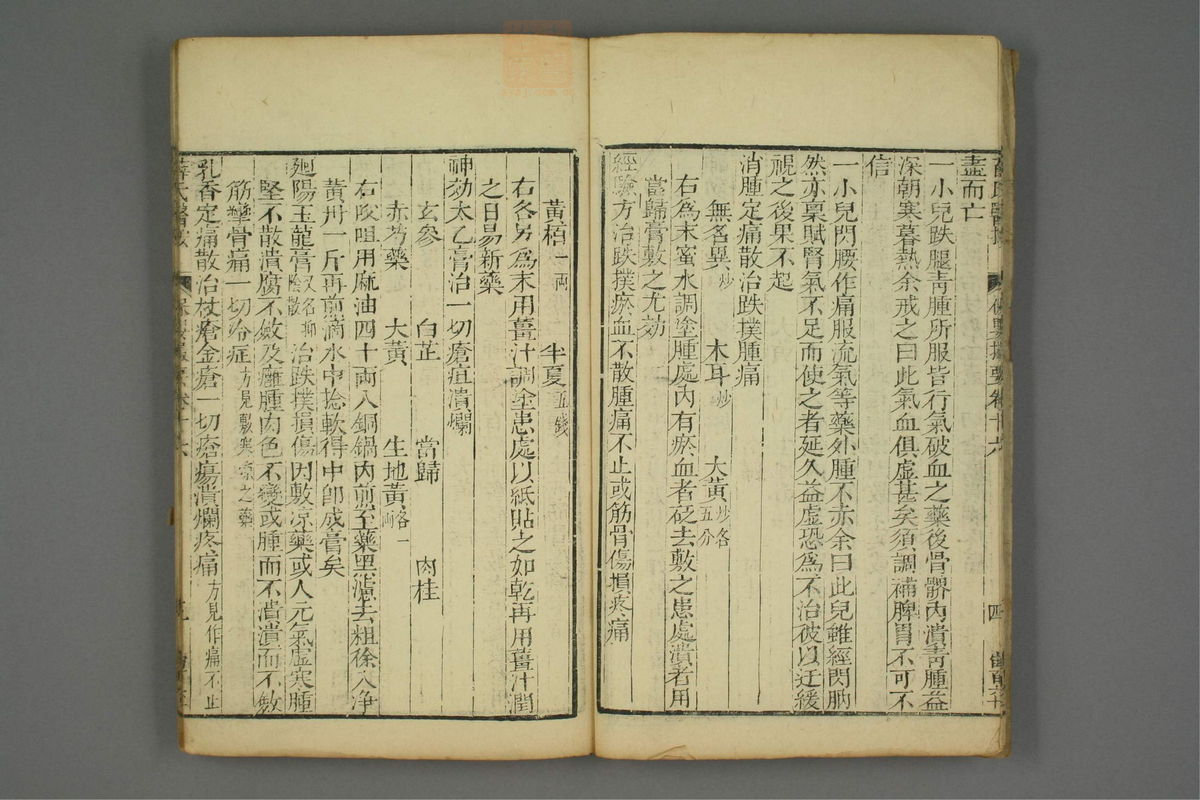 盡而亡
一小兒跌腿青腫所服皆行氣破血之藥後骨髒內潰青腫益
深朝寒暮熱余戒之曰此氣血俱虛甚矣須調補脾胃不可不
信
一小兒閃腰作痛服流氣等藥外腫不赤余曰此兒雖經閃肭
然亦禀賦腎氣不足而使之者延久益虛恐為不治彼以迂緩
視之後果不起
消腫定痛散治跌撲腫痛
無名異炒 木耳炒 大黃炒各五分
右為末蜜水調塗腫處內有瘀血者砭去敷之患處潰者用
當歸膏敷之尤効
經驗方治跌撲瘀血不散腫痛不止或筋骨傷損疼痛
黃栢一兩 半夏五錢
右各另為末用薑汁調塗患處以紙貼之如乾再用薑汁潤
之日易新藥
神効太乙膏治一切瘡疽潰爛
玄參 白芷 當歸 肉桂
赤芍藥 大黃 生地黃各一兩
右㕮咀用麻油四十兩入銅鍋內煎至藥黑濾去粗徐入净
黃丹一斤再煎滴水中捻軟得中即成膏矣
廻陽玉龍膏又名抑陰散 治跌撲損傷因敷凉藥或人元氣虛寒腫
堅不散潰腐不斂及癰腫肉色不變或腫而不潰潰而不斂
筋攣骨痛一切冷症方見敷寒凉之藥
乳香定痛散治杖瘡金瘡一切瘡瘍潰爛疼痛方見作痛不止
薛氏醫按